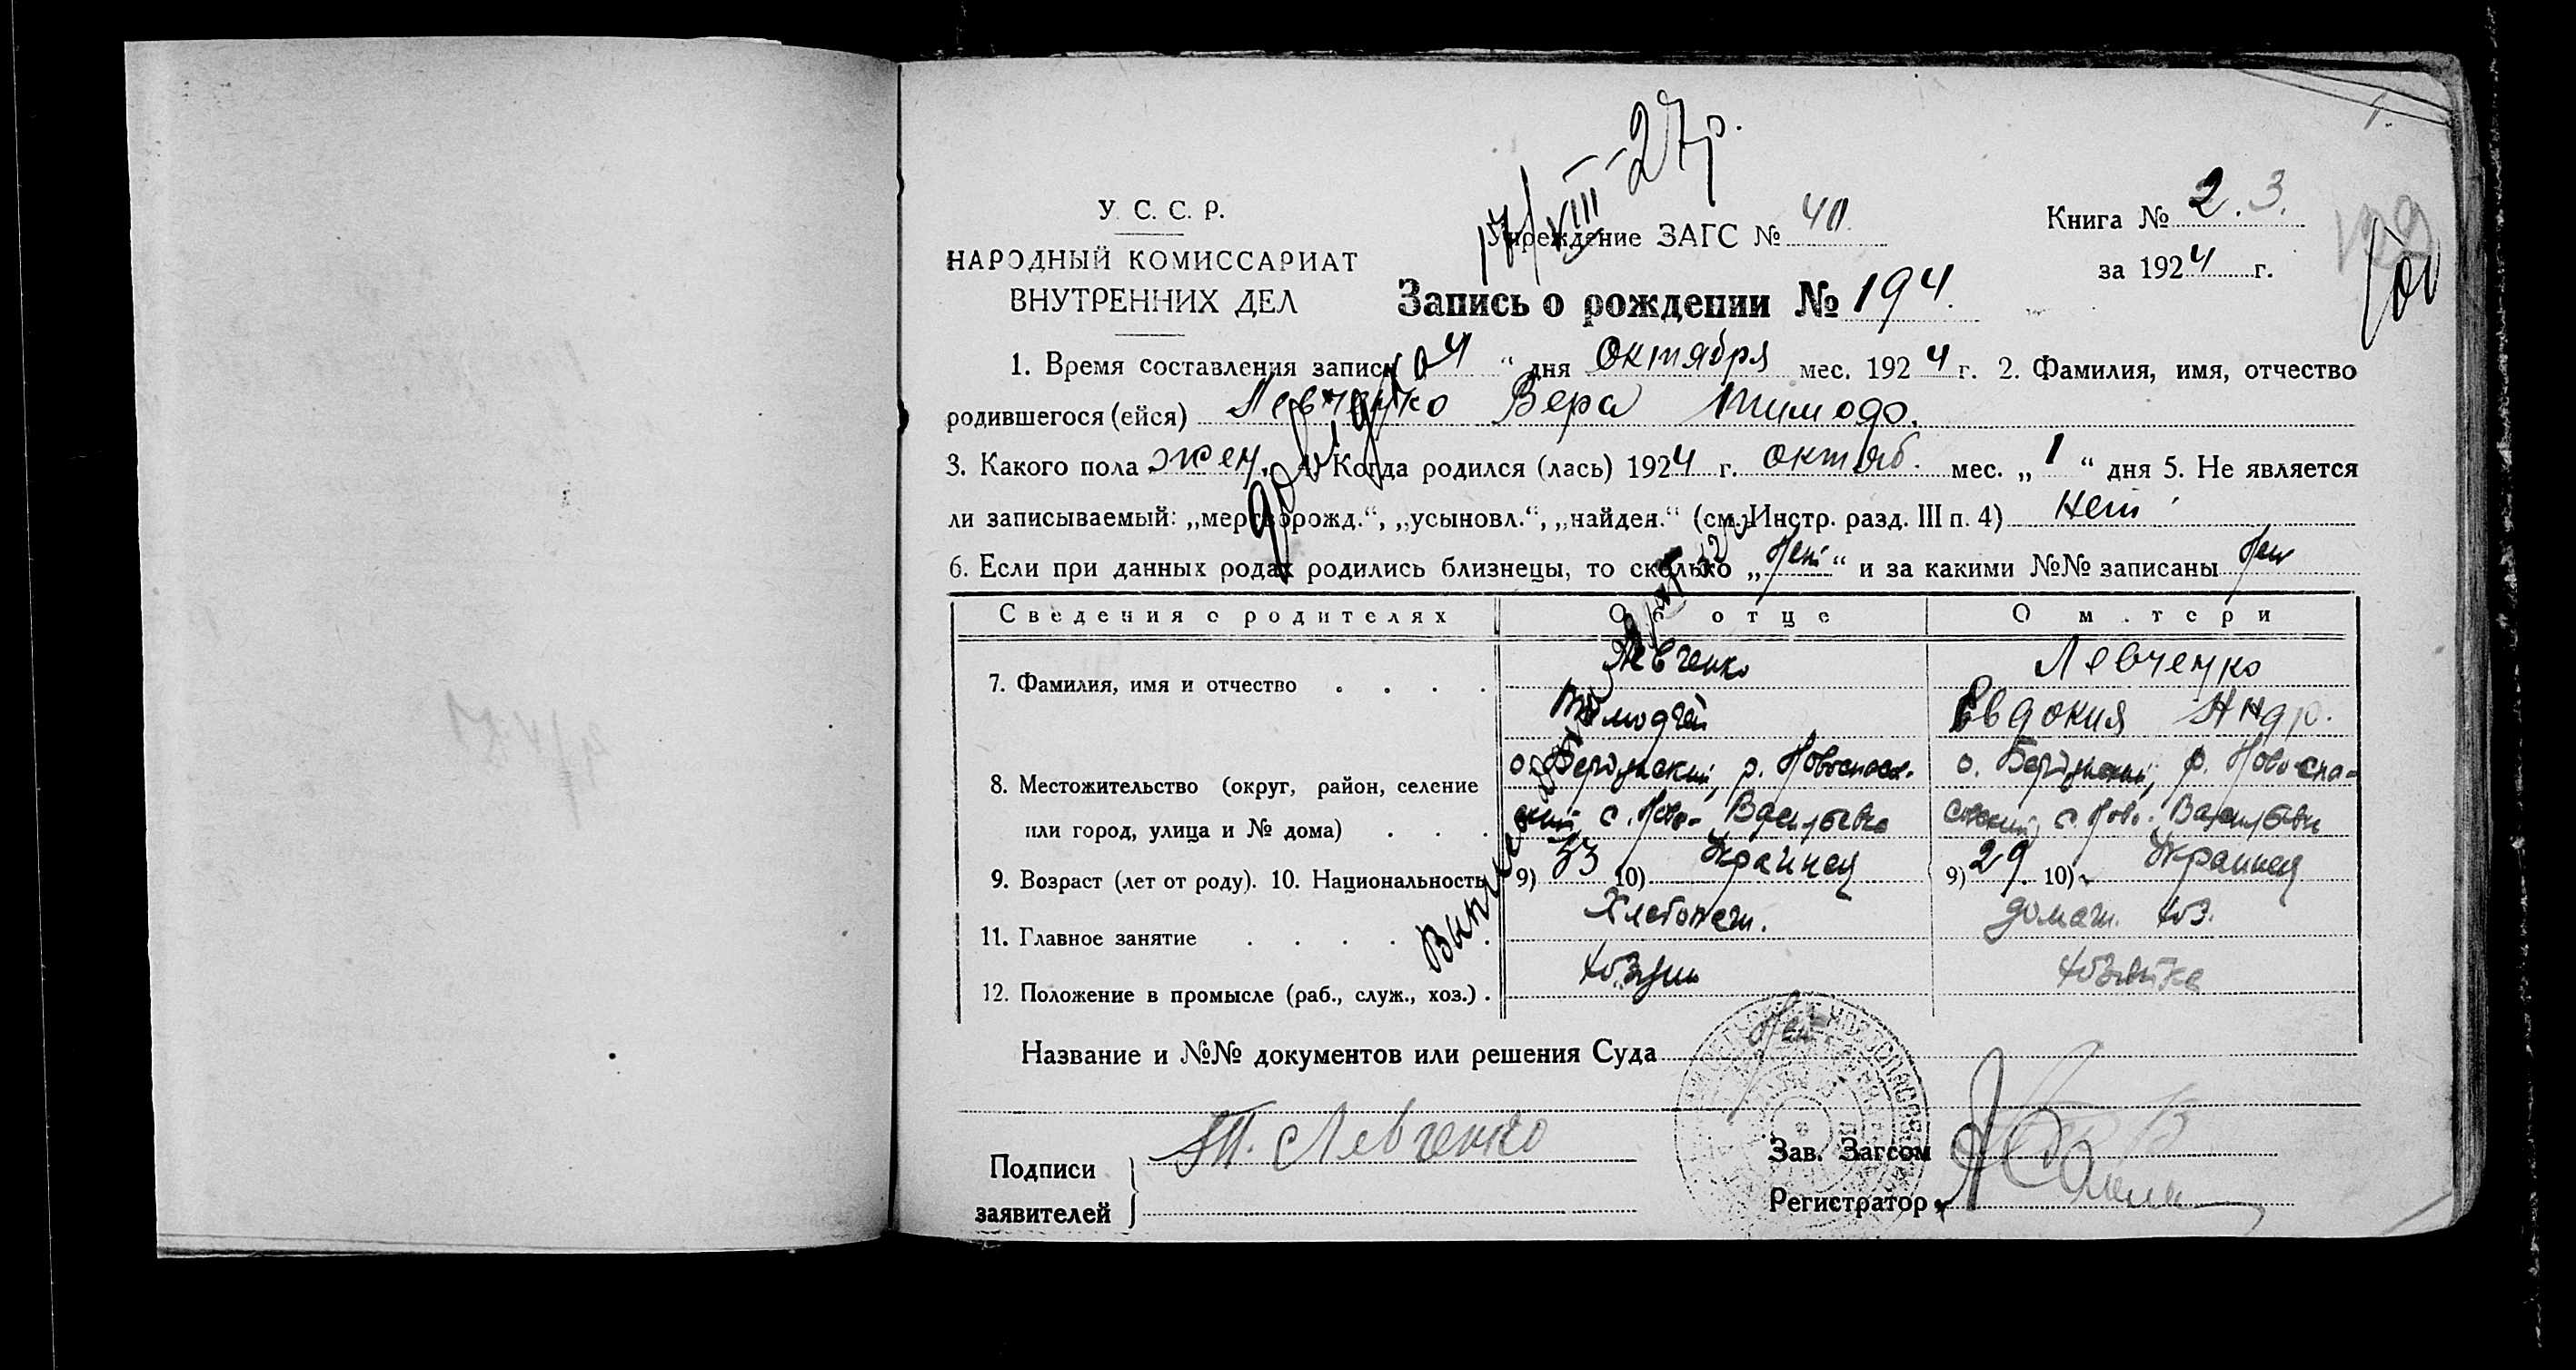 1.
17/VIII-27р.
У. С. С. Р.
НАРОДНЫЙ КОМИССАРИАТ
ВНУТРЕННИХ ДЕЛ
Учреждение ЗАГС № 40.
Книга № 2. 3.
за 1924 г.
Запись о рождении № 194.
1. Время составления записи 4 “ дня Октября мес. 1924 г. 2. Фамилия, имя, отчество
родившегося (ейся) Левченко Вера Тимоф.
3. Какого пола жен. 4. Когда родился (лась) 1924 г. октяб. мес. „ 1 “ дня 5. Не является
ли записываемый: „мертворожд.“, „усыновл.“, „найден.“ (см. Инстр. разд. III п. 4) нет
6. Если при данных родах родились близнецы, то сколько „ Нет “ и за какими №№ записаны Нет
Сведения о родителях О отце О м.тери
7. Фамилия, имя и отчество . . . . Левченко Левченко
Тимофей Евдокия Андр.
8. Местожительство (округ, район, селение о. Бердянский, р. Новоспас- о. Бердянский, р. Новоспа-
или город, улица и № дома) . . . ский, с. Ново-Васильевка сский, с. Ново-Васильевка
9. Возраст (лет от роду). 10. Национальность 9) 33 10) Украинец 9) 29. 10) Украинец
11. Главное занятие . . . . . Хлебопаш. домаш. хоз.
12. Положение в промысле (раб., служ., хоз.) . хозяин хозяйка
Название и №№ документов или решения Суда Нет
Подписи
заявителей
Т. Левченко
Зав. Загсом
Регистратор